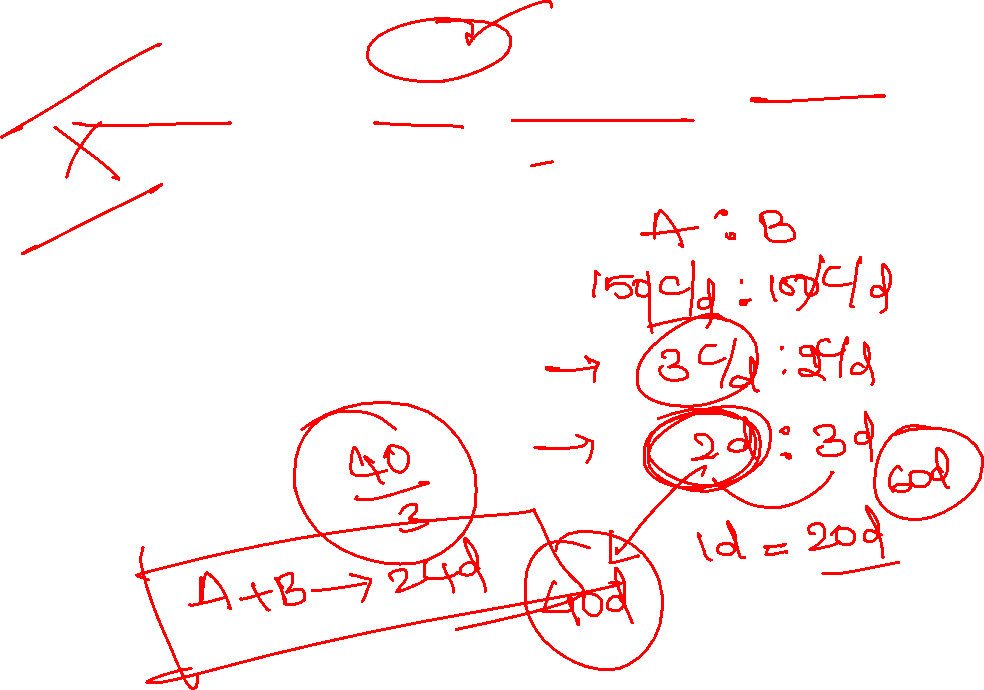 A : B
150C/d : 100C/d
→ 3C/d : 2C/d
→ 2d : 3d
60d
1d = 20d
40/3
A+B → 24d
40d